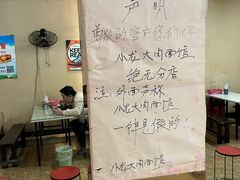 声明
尊敬的客户您们好
小龙大肉面馆
绝无分店
注:外面声称
小龙大肉面馆
一律是假的!
小龙大肉面馆